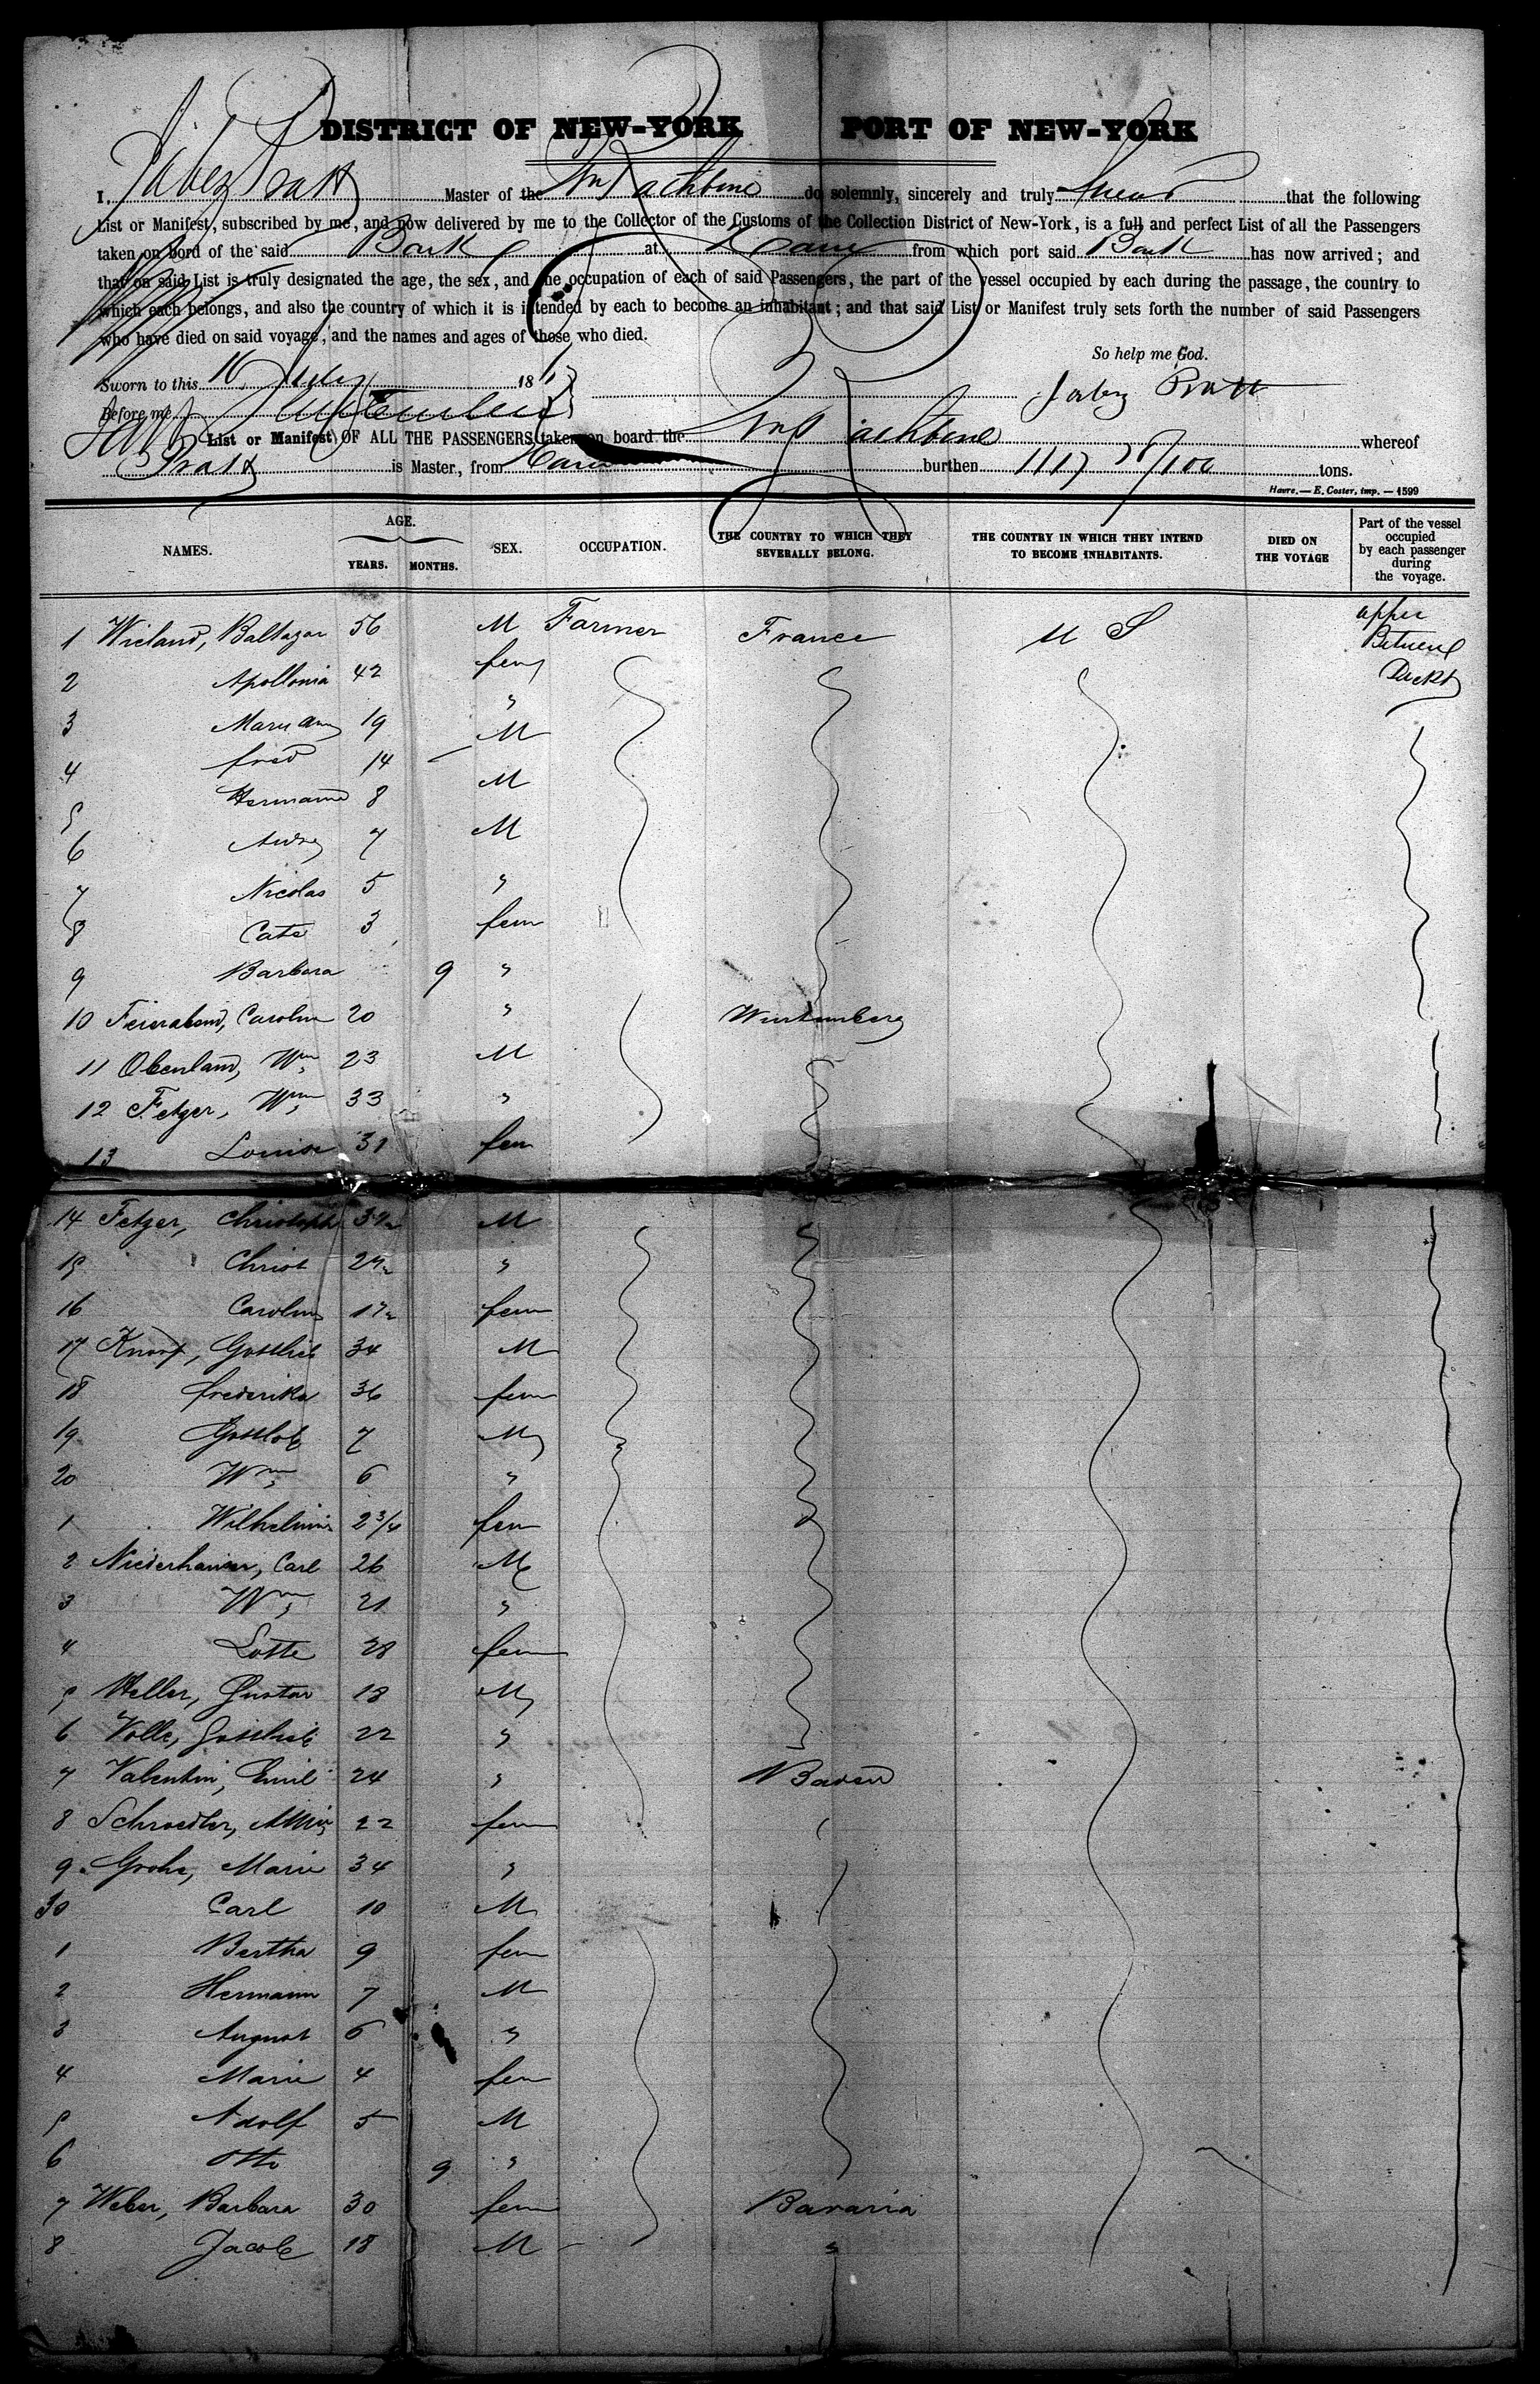 DISTRICT OF NEW-YORK PORT OF NEW-YORK
I, Jabez Pratt Master of the Wm Rathbone do solemnly, sincerely and truly swear that the following
List or Manifest, subscribed by me, and now delivered by me to the Collector of the Customs of the Collection District of New-York, is a full and perfect List of all the Passengers
taken on bord of the said Bark at Havre from which port said Bark has now arrived; and
that on said List is truly designated the age, the sex, and the occupation of each of said Passengers, the part of the vessel occupied by each during the passage, the country to
which each belongs, and also the country of which it is intended by each to become an inhabitant; and that said List or Manifest truly sets forth the number of said Passengers
who have died on said voyage, and the names and ages of those who died.
So help me God.
Sworn to this 16 July 186
Jabez Pratt
Before me
List or Manifest OF ALL THE PASSENGERS taken on board the Wm Rathbone whereof
Pratt is Master, from Havre burthen 1117 tons.
Havre. — E. Coster, imp. — 1599
NAMES. AGE. YEARS. MONTHS. SEX. OCCUPATION. THE COUNTRY TO WHICH THEY SEVERALLY BELONG. THE COUNTRY IN WHICH THEY INTEND TO BECOME INHABITANTS. DIED ON THE VOYAGE Part of the vessel occupied by each passenger during the voyage.
1 Wieland, Baltazar 56 M Farmer France U S upper Between Decks
2 Apollonia 42 fem
3 Mary Ann 19 "
4 fred 14 M
5 Hermann 8 M
6 7 M
7 Nicolas 5 "
8 Cate 3 fem
9 Barbara 9 "
10 Feierabend, Carolin 20 " Wurtemberg
11 Obenland, Wm 23 M
12 Fetzer, Wm 33 "
13 Louise 31 fem
14 Fetzer, Christoph M
15 Christ "
16 Carolin fem
17 Knapp, Gottlieb 34 M
18 frederika 36 fem
19 Gottlob 7 M
20 Wm 6 "
1 Wilhelmin 2 3/4 fem
2 Niederhauser, Carl 26 M
3 Wm 21 "
4 Lotte 28 fem
5 Heller, Gustav 18 M
6 Volle, Gottlieb 22 "
7 Valentin, Emil 24 " Baden
8 Schroedler, 22 fem
9 Grohe, Marie 34 "
30 Carl 10 M
1 Bertha 9 fem
2 Hermann 7 M
3 August 6 "
4 Marie 4 fem
5 Adolf 5 M
6 Otto 9 "
7 Weber, Barbara 30 fem Bavaria
8 Jacob 18 M "